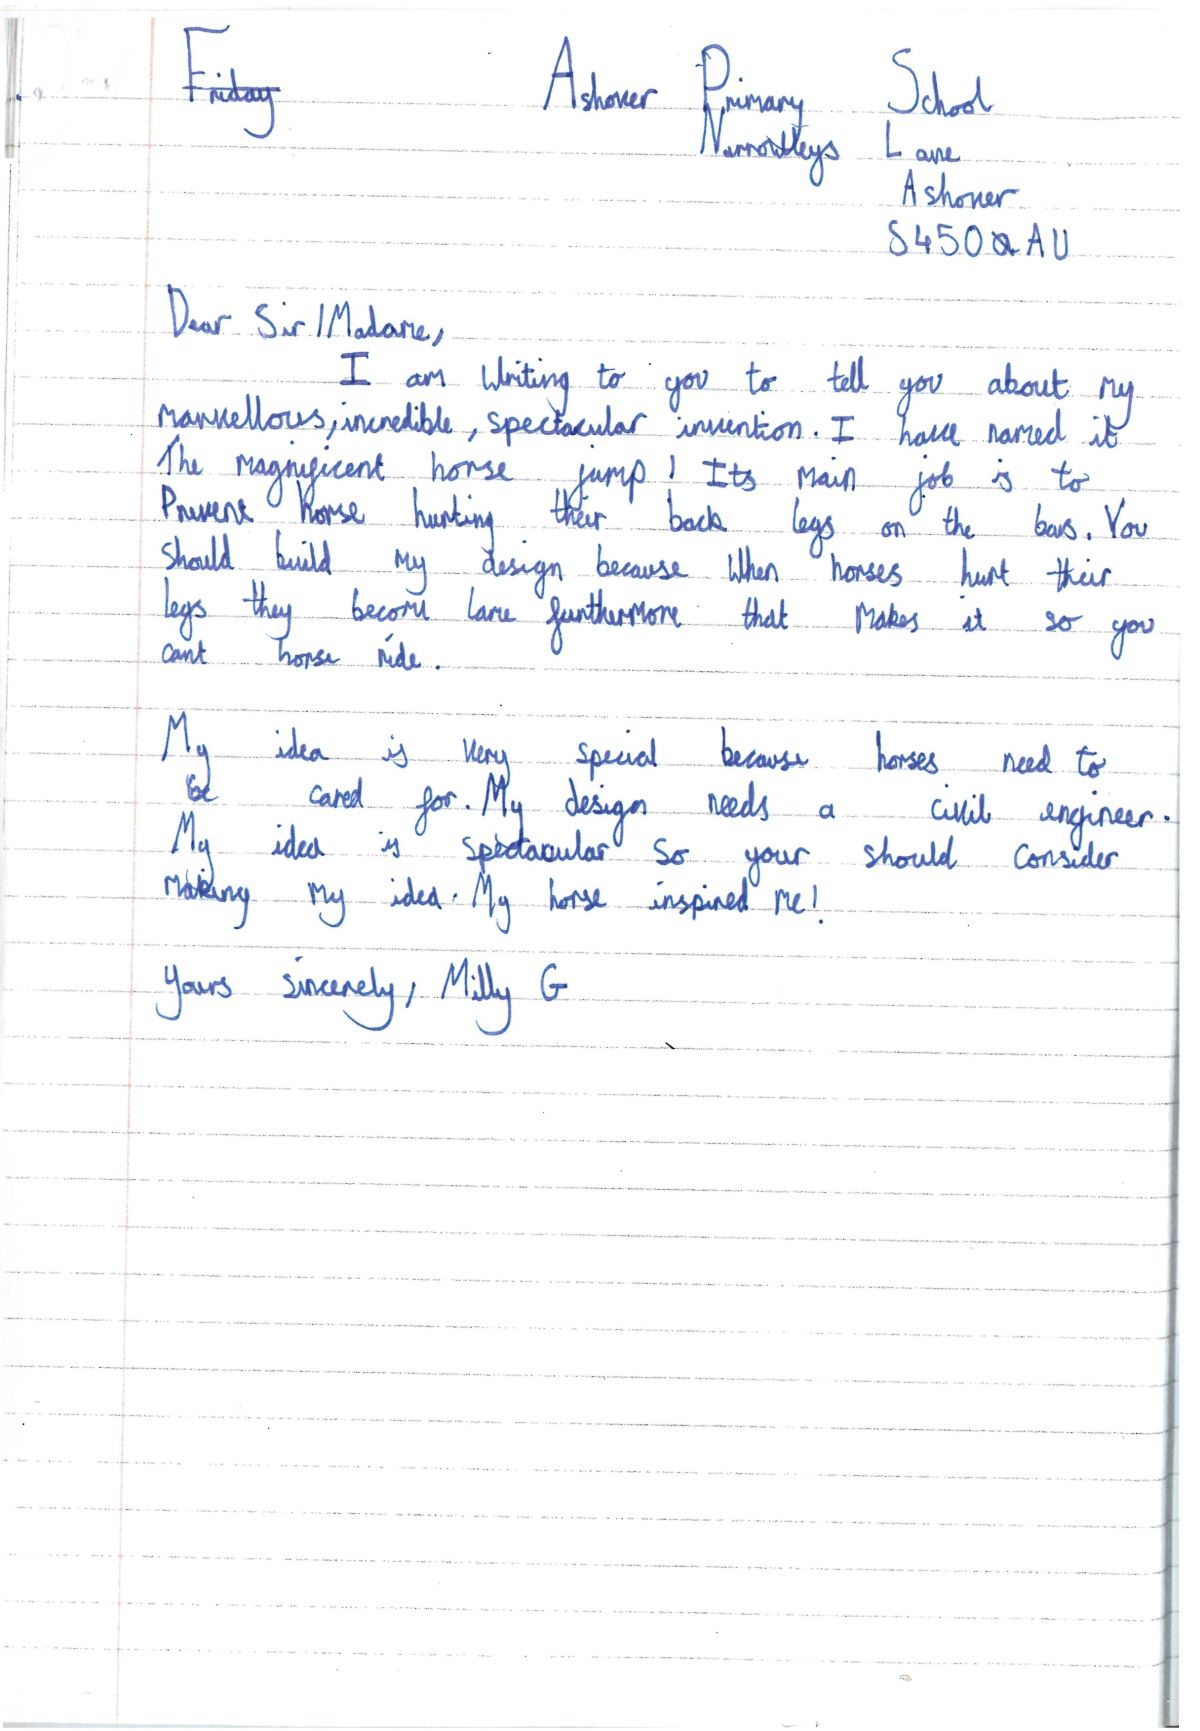 Friday Ashover Primary School
Narrowleys Lane
Ashover
S450AU
Dear Sir/Madame,
I am writing to you to tell you about my
marvellous, incredible, spectacular invention. I have named it
The magnificent horse jump! Its main job is to
Prevent horse hurting their back legs on the bars. You
should build my design because when horses hurt their
legs they become lame furthermore that makes it so you
cant horse ride.
My idea is very special because horses need to
be cared for. My design needs a civil engineer.
My idea is spectacular so your should consider
making my idea. My horse inspired me!
Yours sincerely, Milly G